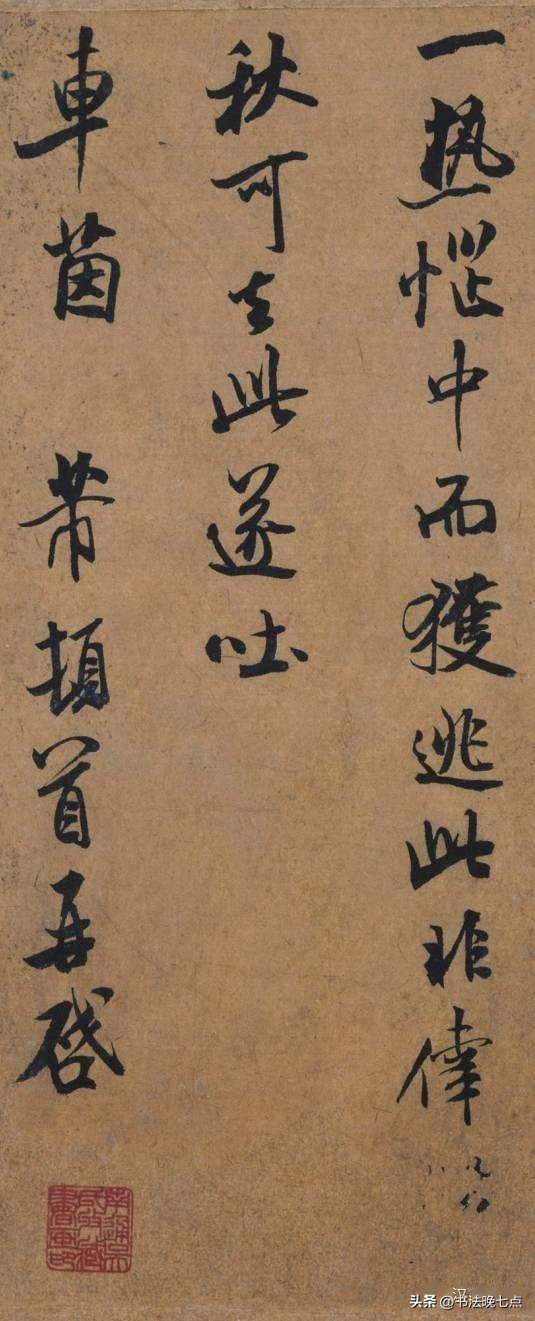 一熱惱中而獲逃此非倖
秋可去此遂吐
車茵 芾頓首再啓
头条 @书法晚七点